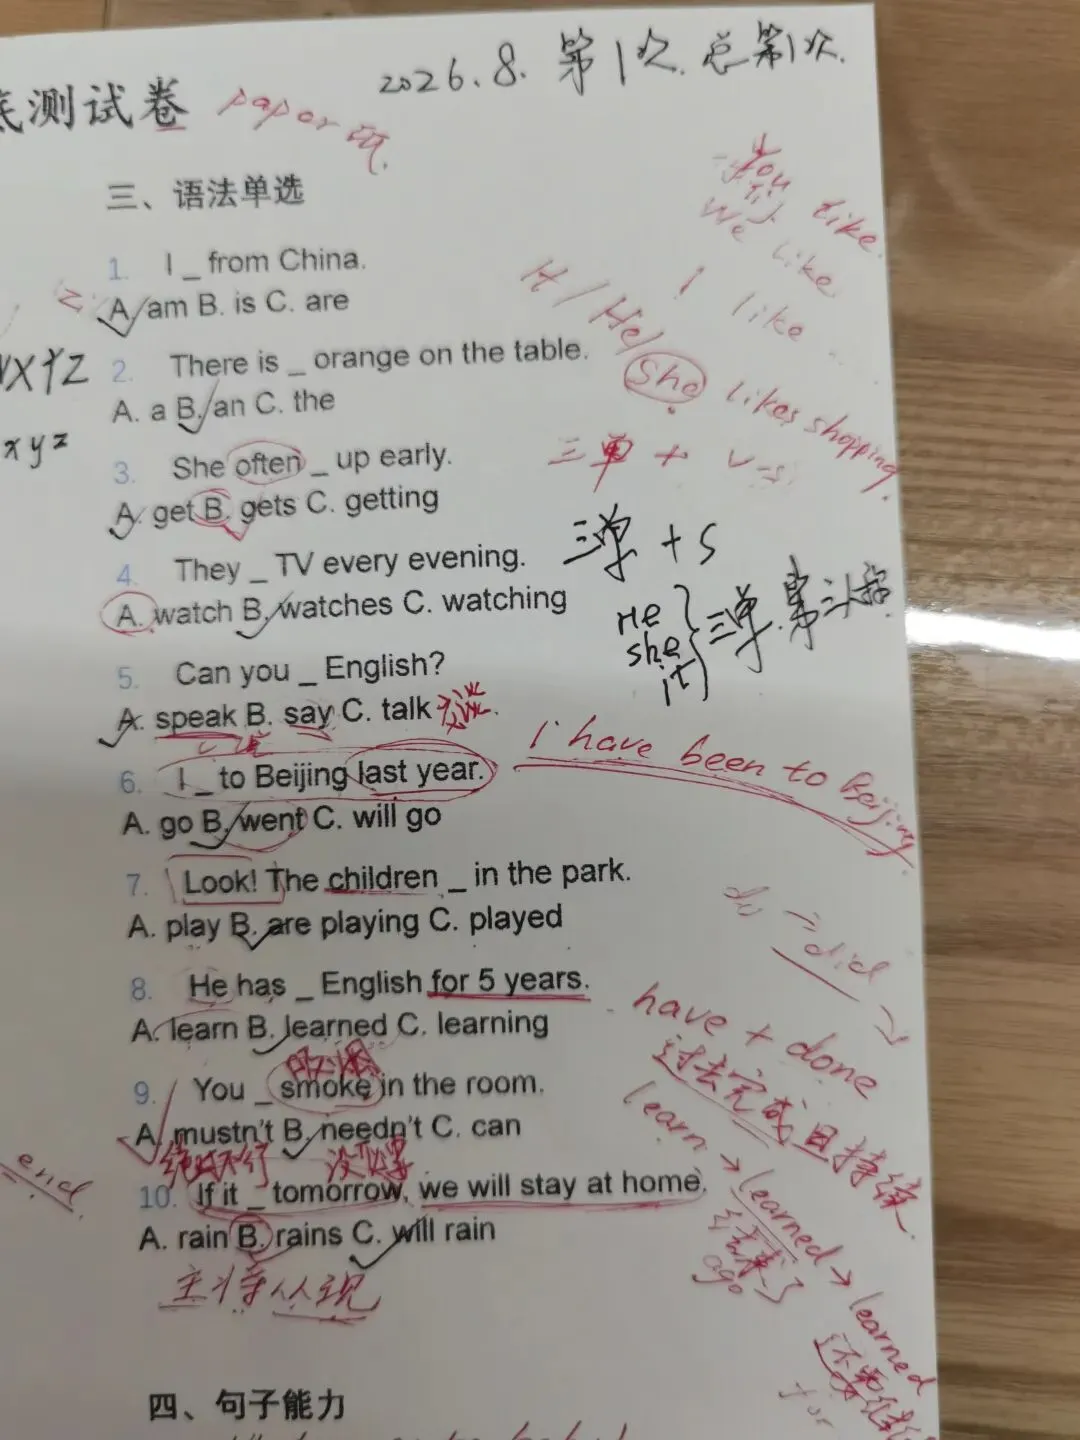 2026.8. 第1次. 总第1次.
底测试卷 paper 项.
三、语法单选
1. I _ from China.
A. am B. is C. are
2. There is _ orange on the table.
A. a B. an C. the
3. She often _ up early.
A. get B. gets C. getting
4. They _ TV every evening.
A. watch B. watches C. watching
5. Can you _ English?
A. speak B. say C. talk 交谈.
6. I _ to Beijing last year.
A. go B. went C. will go
7. Look! The children _ in the park.
A. play B. are playing C. played
8. He has _ English for 5 years.
A. learn B. learned C. learning
吸烟
9. You _ smoke in the room.
A. mustn't B. needn't C. can
绝对不行 没必要
10. If it _ tomorrow, we will stay at home.
A. rain B. rains C. will rain
主将从现
四、句子能力
xyz
end
You like.
We like
I like
H / He/
She likes shopping.
三单 + v-s
三单 + s
He
she
it
三单. 第三人称
I have been to Beijing
do → did →
have + done
过去完成且持续
learn → learned → learned
结束了
ago
还要继续
for